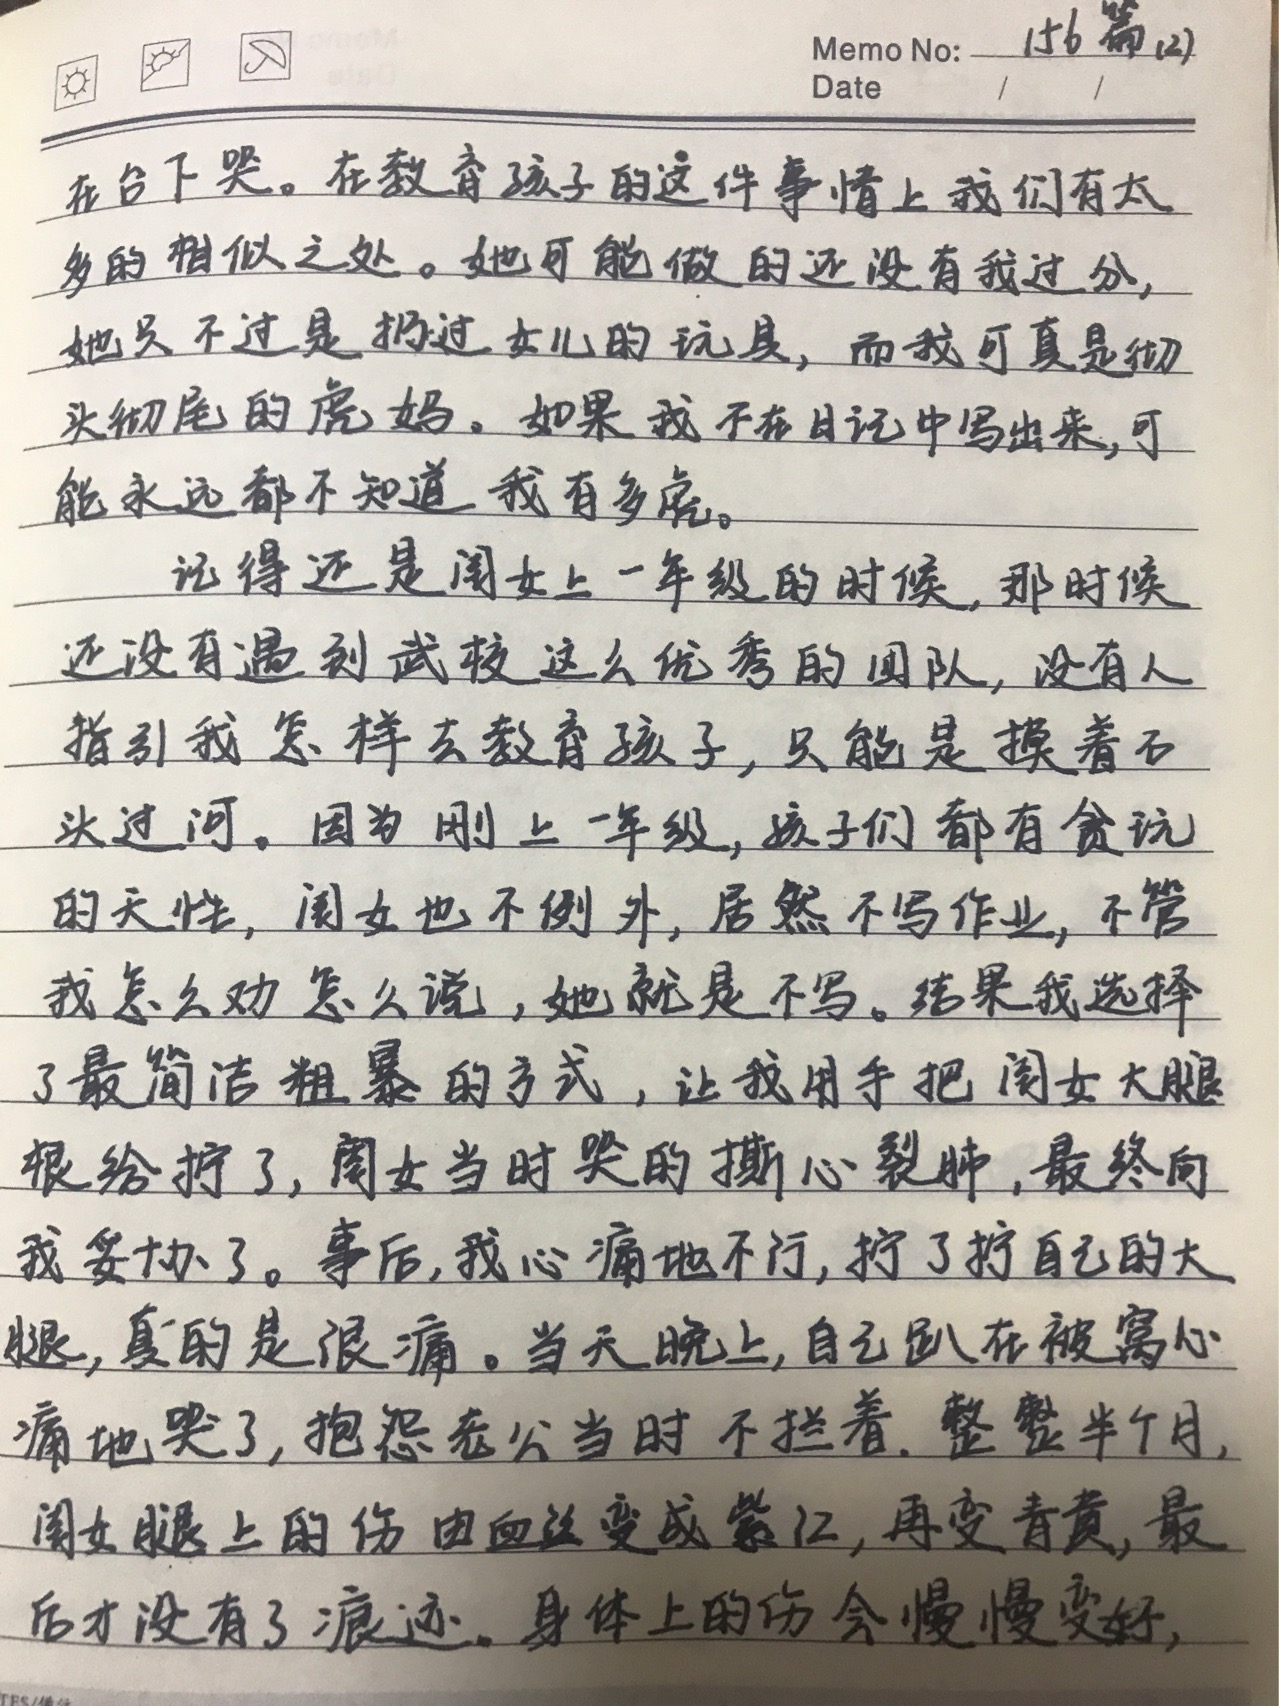 Memo No: 156篇(2)
Date / /
在台下哭。在教育孩子的这件事情上我们有太
多的相似之处。她可能做的还没有我过分,
她只不过是扔过女儿的玩具,而我可真是彻
头彻尾的虎妈。如果我不在日记中写出来,可
能永远都不知道我有多虎。
记得还是闺女上一年级的时候,那时候
还没有遇到武校这么优秀的团队,没有人
指引我怎样去教育孩子,只能是摸着石
头过河。因为刚上一年级,孩子们都有贪玩
的天性,闺女也不例外,居然不写作业,不管
我怎么劝怎么说,她就是不写。结果我选择
了最简洁粗暴的方式,让我用手把闺女大腿
根给拧了,闺女当时哭的撕心裂肺,最终向
我妥协了。事后,我心痛地不行,拧了拧自己的大
腿,真的是很痛。当天晚上,自己趴在被窝心
痛地哭了,抱怨老公当时不拦着.整整半个月,
闺女腿上的伤由血丝变成紫红,再变青黄,最
后才没有了痕迹。身体上的伤会慢慢变好,